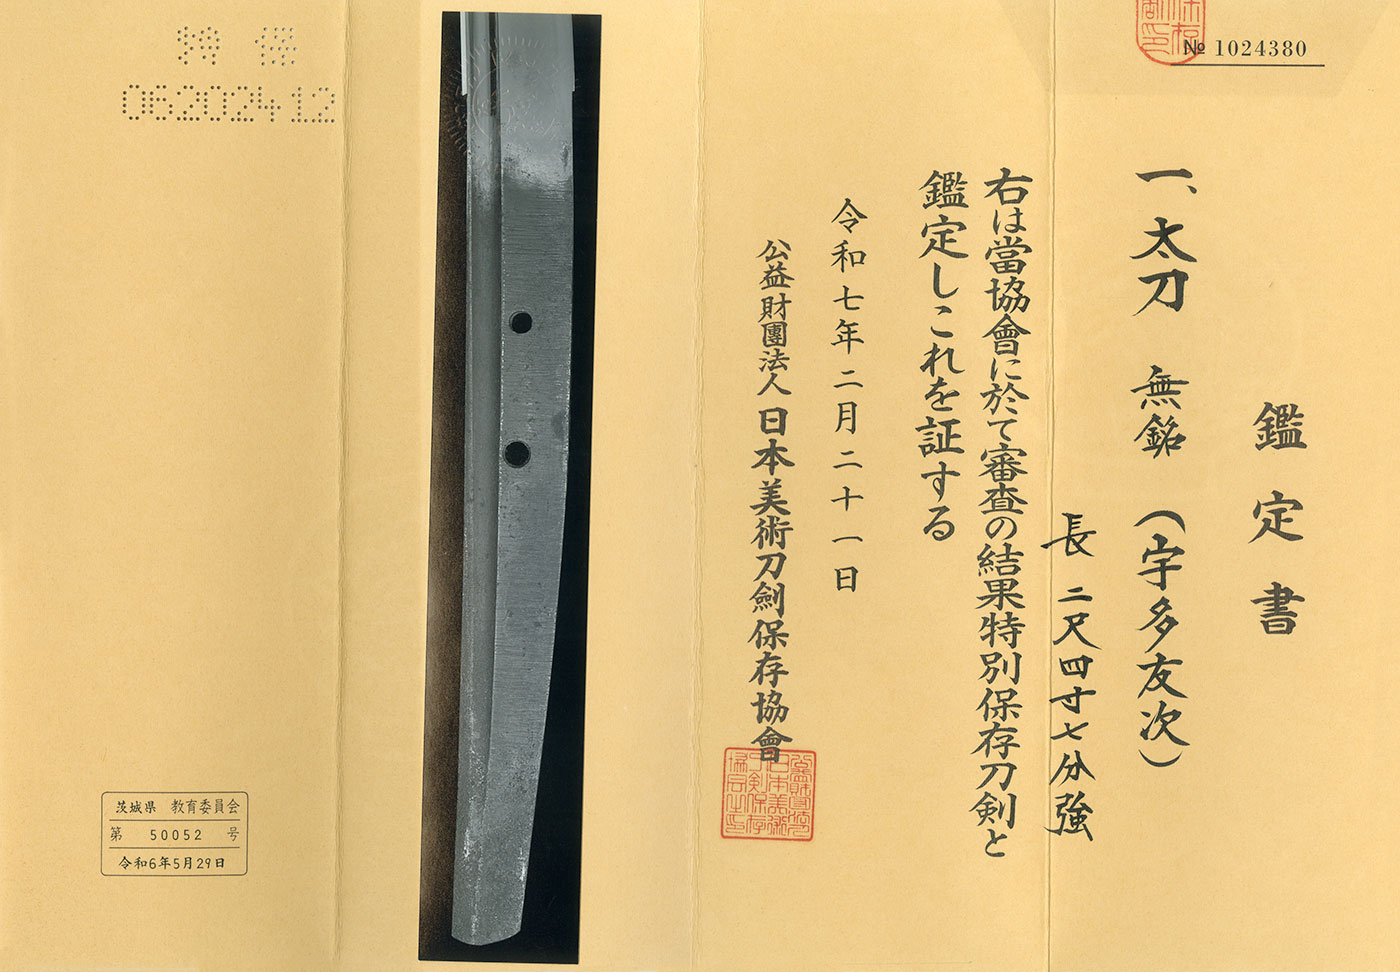 № 1024380
鑑定書
一、太刀 無銘 (宇多友次)
長 二尺四寸七分強
右は當協會に於て審査の結果特別保存刀剣と
鑑定しこれを証する
令和七年二月二十一日
公益財團法人 日本美術刀劍保存協會
特保
06202412
茨城県 教育委員会
第 50052 号
令和6年5月29日